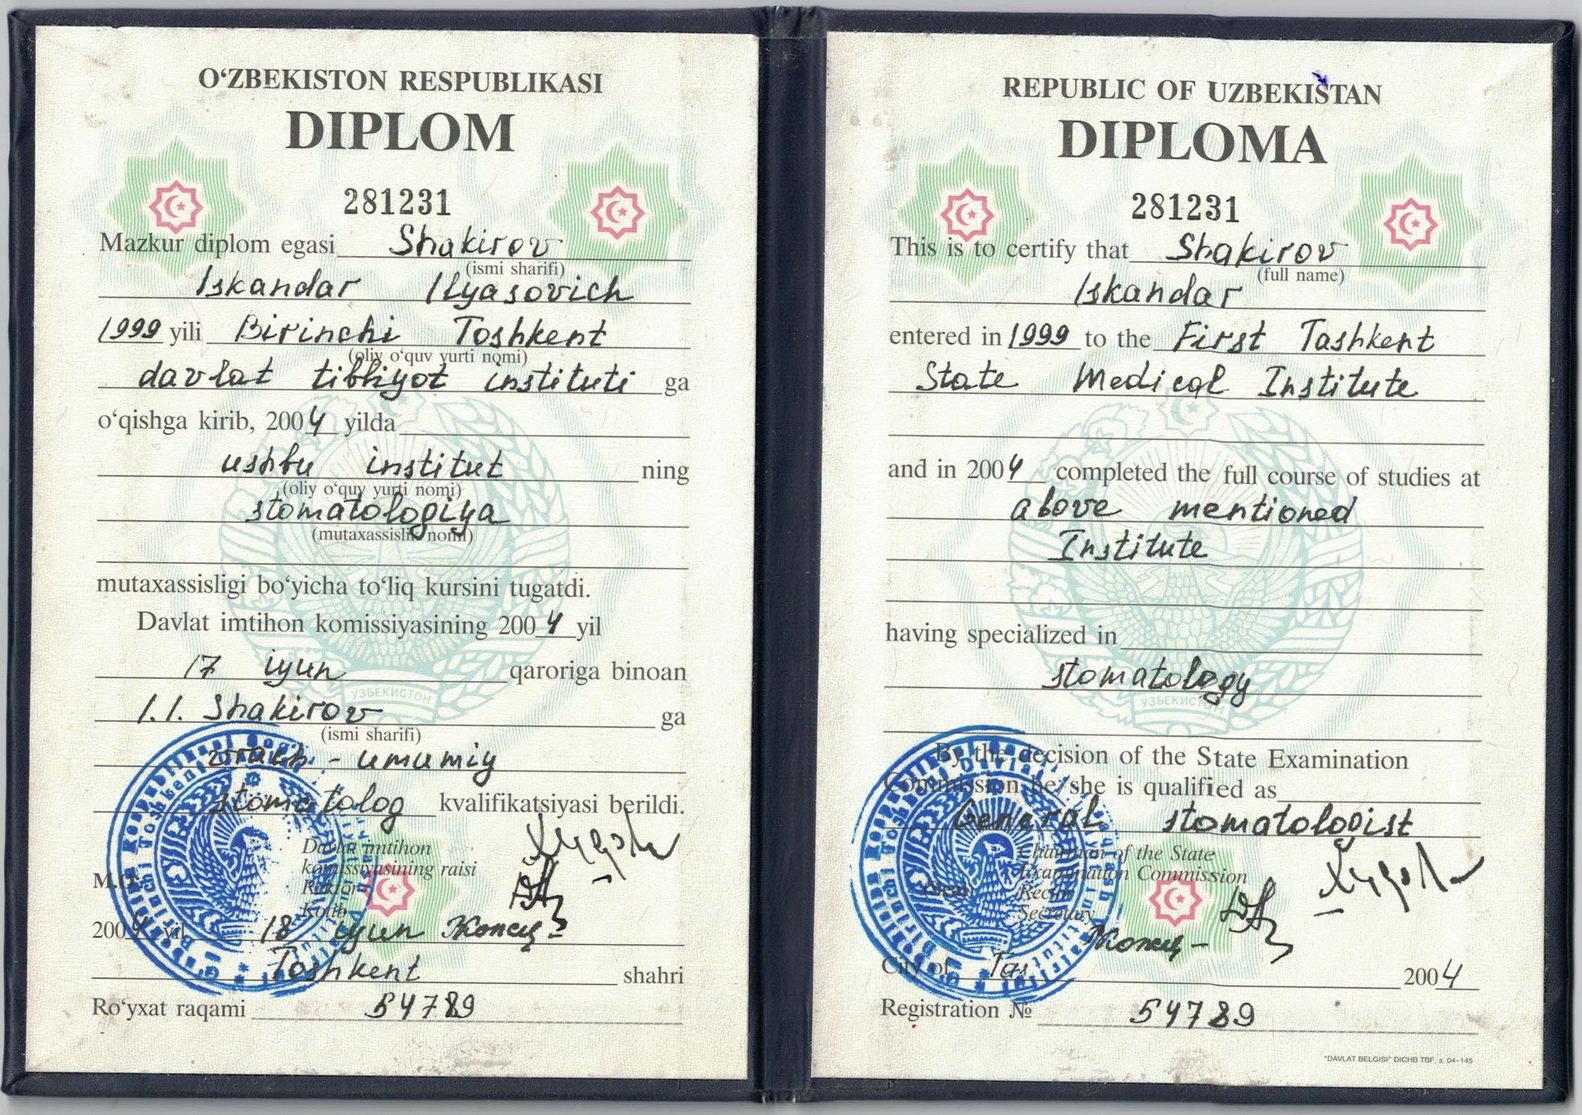 O‘ZBEKISTON RESPUBLIKASI
DIPLOM
281231
Mazkur diplom egasi Shakirov
(ismi sharifi)
Iskandar Ilyasovich
1999 yili Birinchi Toshkent
(oliy o‘quv yurti nomi)
davlat tibbiyot instituti ga
o‘qishga kirib, 2004 yilda
ushbu institut ning
(oliy o‘quv yurti nomi)
stomatologiya
(mutaxassislik nomi)
mutaxassisligi bo‘yicha to‘liq kursini tugatdi.
Davlat imtihon komissiyasining 2004 yil
17 iyun qaroriga binoan
I.I. Shakirov ga
(ismi sharifi)
vrach - umumiy
stomatolog kvalifikatsiyasi berildi.
Davlat imtihon
komissiyasining raisi
M.O. Rektor
Kotib
2004 yil 18 iyun
Toshkent shahri
Ro‘yxat raqami 54789
REPUBLIC OF UZBEKISTAN
DIPLOMA
281231
This is to certify that Shakirov
(full name)
Iskandar
entered in 1999 to the First Tashkent
State Medical Institute
and in 2004 completed the full course of studies at
above mentioned
Institute
having specialized in
stomatology
УЗБЕКИСТОН
By the decision of the State Examination
Commission he/she is qualified as
General stomatologist
Chairman of the State
Examination Commission
Rector
Secretary
City of Tas 2004
Registration № 54789
"DAVLAT BELGISI" DICHB TBF, з. 04–145